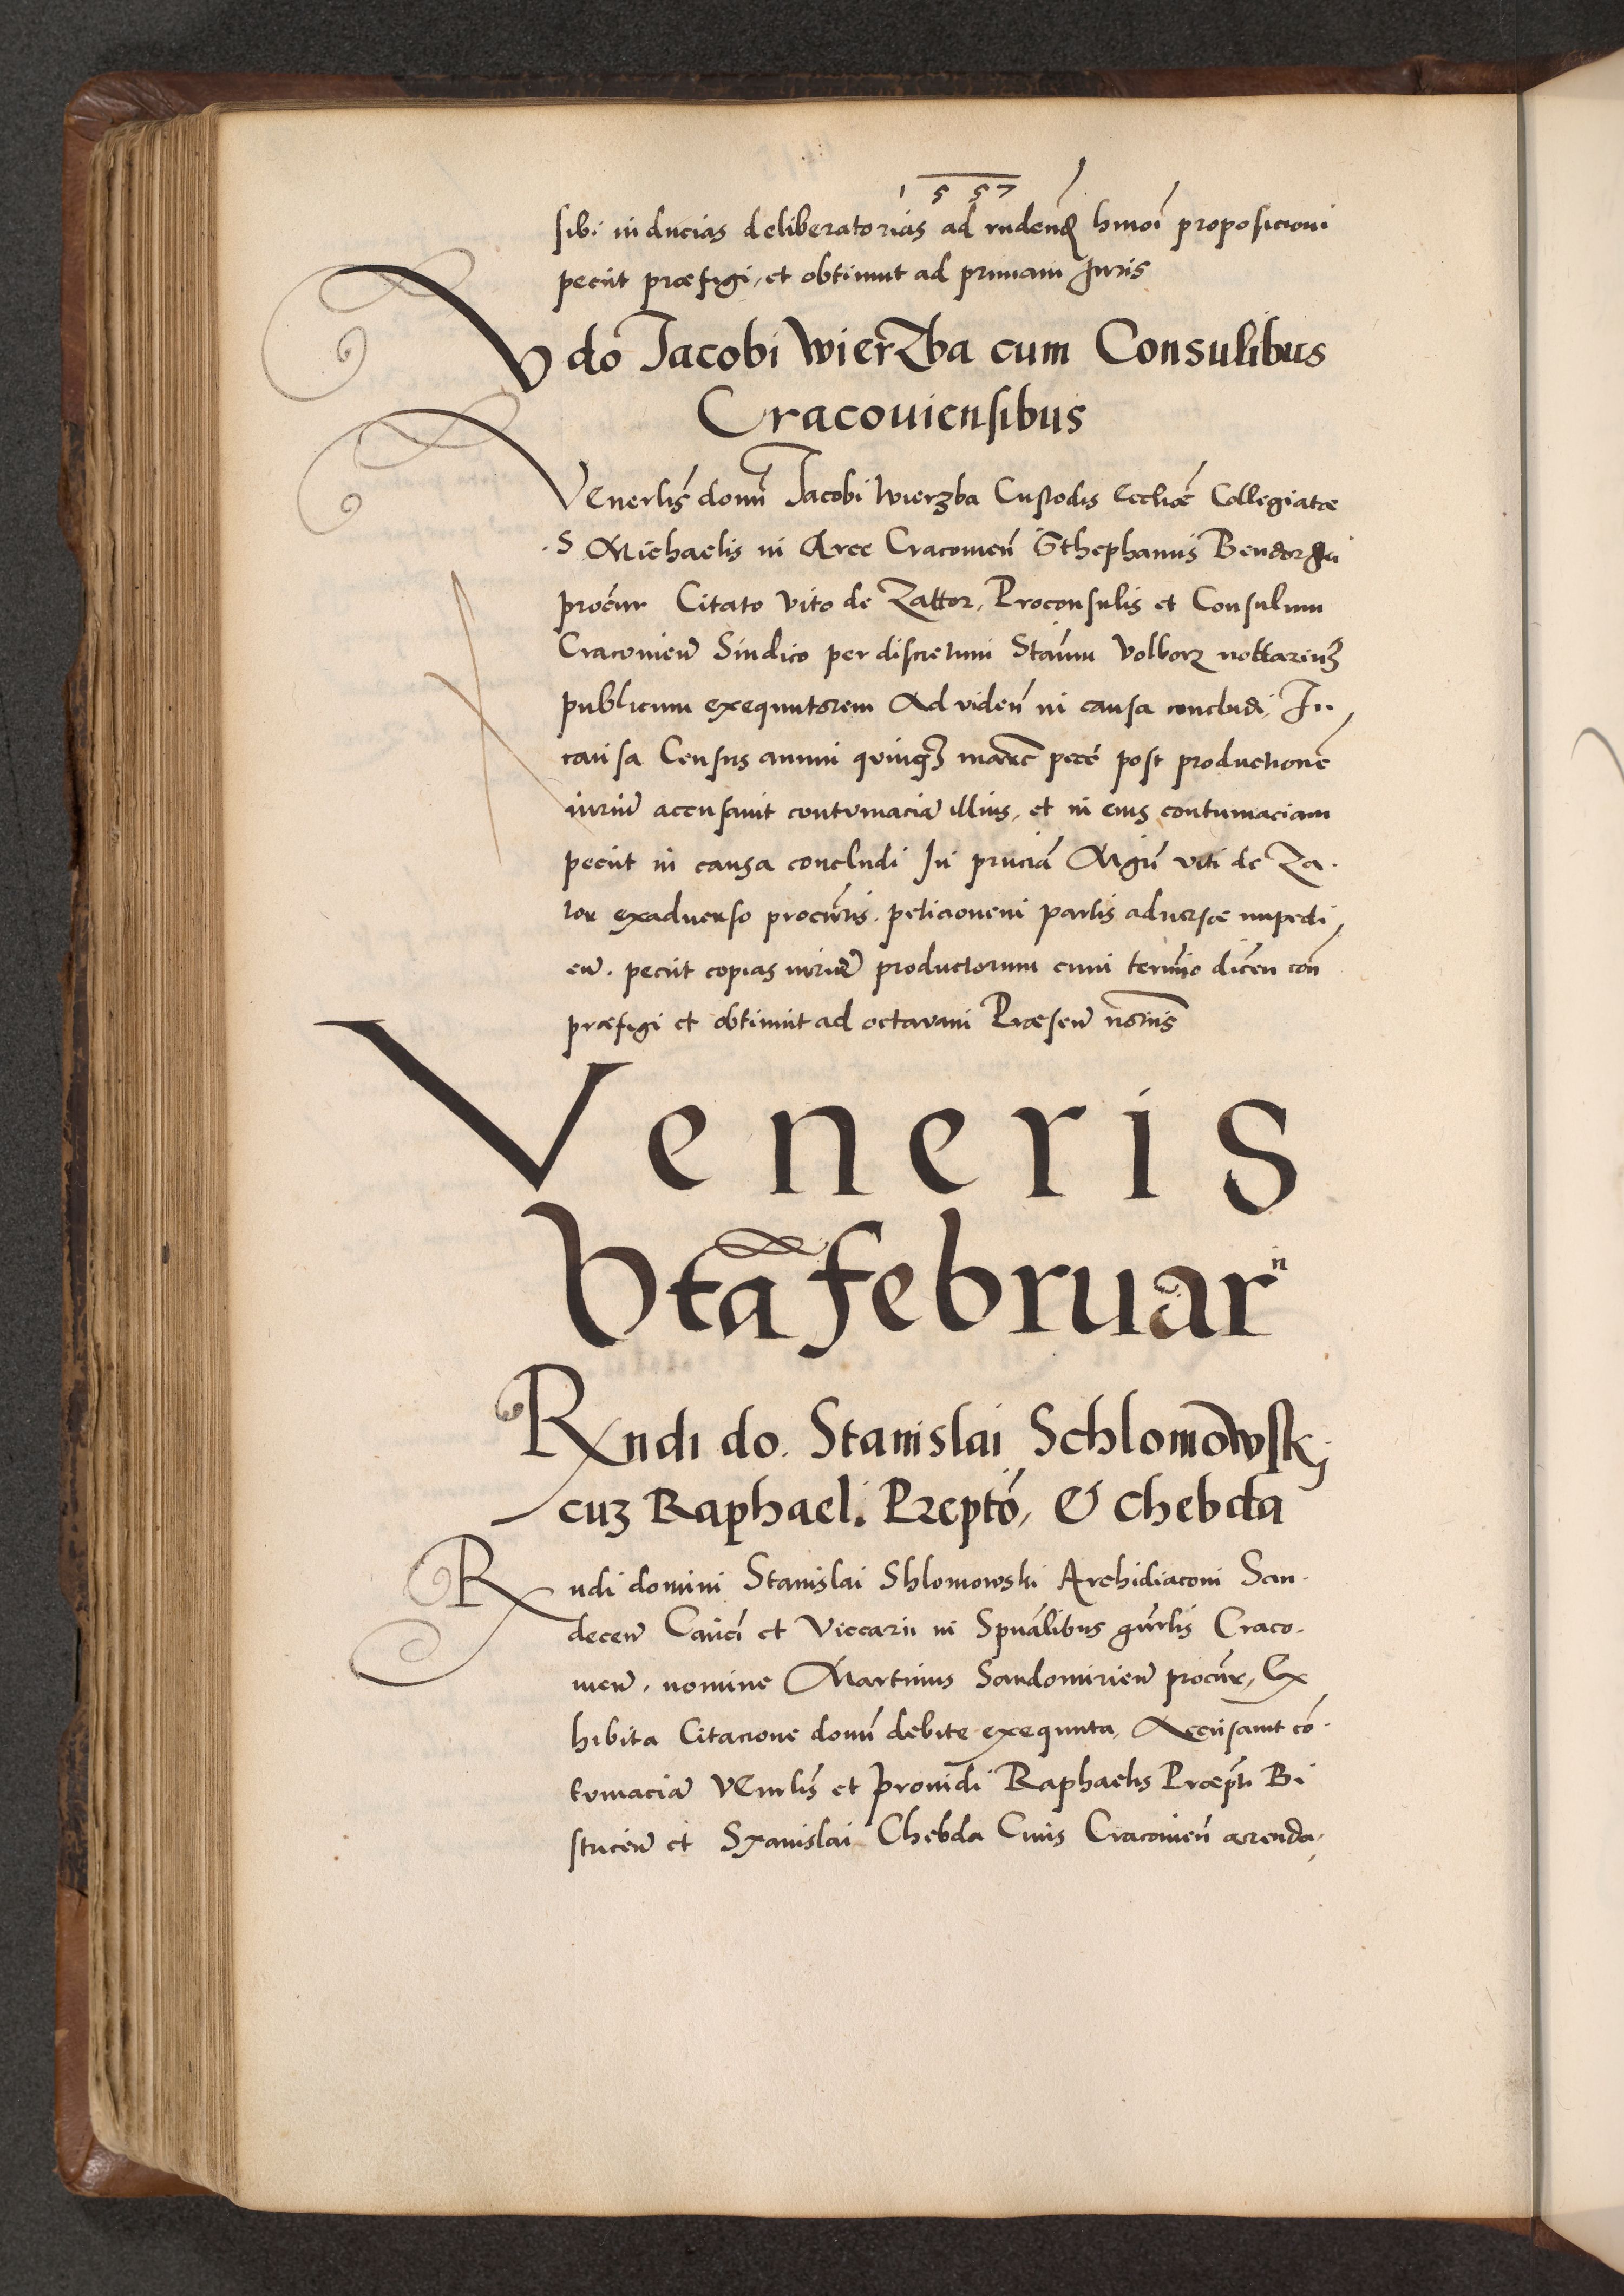 1557
sibi inducias deliberatorias ad rndend hmoi proposicioni
peciit præfigi, et obtinuit ad primam Juris
V do Jacobi Wierzba cum Consulibus
Cracouiensibus
Venerlis domi Jacobi Wierzba Custodis Eccliæ Collegiatæ
S Michaelis in Arce Cracouien Sthephanus Bendorski
procur Citato Vito de Zattor, Proconsulis et Consulum
Cracouien Sindico per discretum Stanm Volborz nottarium
publicum exequutorem Ad viden in causa concludi, In
causa Census annui quinq marc pecc post productione
iurium accusauit contumacia illius, et in eius contumaciam
peciit in causa concludi In pnciã Mgri viti de Za-
tor exaduerso procuris. peticionem partis aduersæ impedi
en. peciit copias iurium productorum cum termino dicen con
præfigi et obtinuit ad octauam Præsen nomis
Veneris
Vta februar
Rndi do. Stanislai Schlomowskj
cuz Raphael. Prepto, & Chebda
Rndi domini Stanislai Shlomowski Archidiaconi San-
decen Canci et Viccarii in Spualibus gnrlis Craco-
uien. nomine Martinus Sandomirien procur, Ex
hibita Citacione domi debite exequuta, Accusauit co-
tumacia Venrlis et prouidi Raphaelis Præpti Bi
stricien et Stanislai Chebda Ciuis Cracouien arenda,